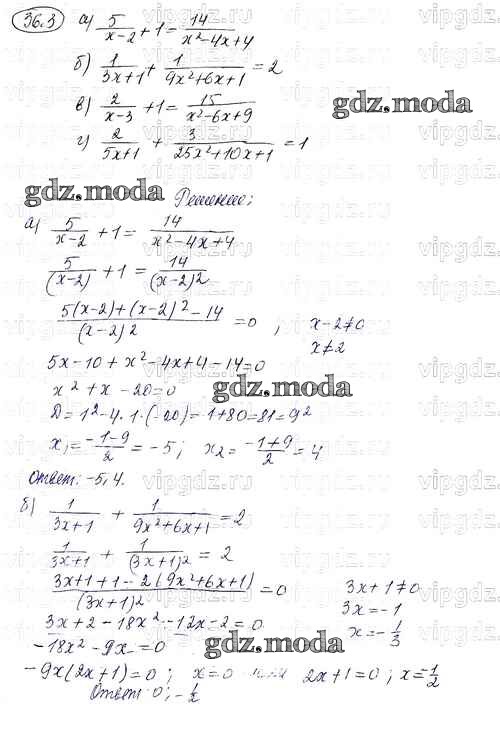 36.3 а) 5/(x-2) + 1 = 14/(x²-4x+4)
б) 1/(3x+1) + 1/(9x²+6x+1) = 2
в) 2/(x-3) + 1 = 15/(x²-6x+9)
г) 2/(5x+1) + 3/(25x²+10x+1) = 1
gdz.moda
gdz.moda Решение:
а) 5/(x-2) + 1 = 14/(x²-4x+4)
5/(x-2) + 1 = 14/(x-2)²
(5(x-2)+(x-2)²-14)/(x-2)² = 0 ; x-2≠0
x≠2
5x-10+x²-4x+4-14=0
x²+x-20=0
gdz.moda
D=1²-4·1·(-20)=1+80=81=9²
x₁=(-1-9)/2=-5; x₂=(-1+9)/2=4
Ответ: -5, 4.
б) 1/(3x+1) + 1/(9x²+6x+1) = 2
1/(3x+1) + 1/(3x+1)² = 2
(3x+1+1-2(9x²+6x+1))/(3x+1)² = 0 3x+1≠0
3x=-1
3x+2-18x²-12x-2=0 x=-1/3
-18x²-9x=0
gdz.moda
-9x(2x+1)=0; x=0 или 2x+1=0; x=-1/2
Ответ: 0; -1/2
vipgdz.ru